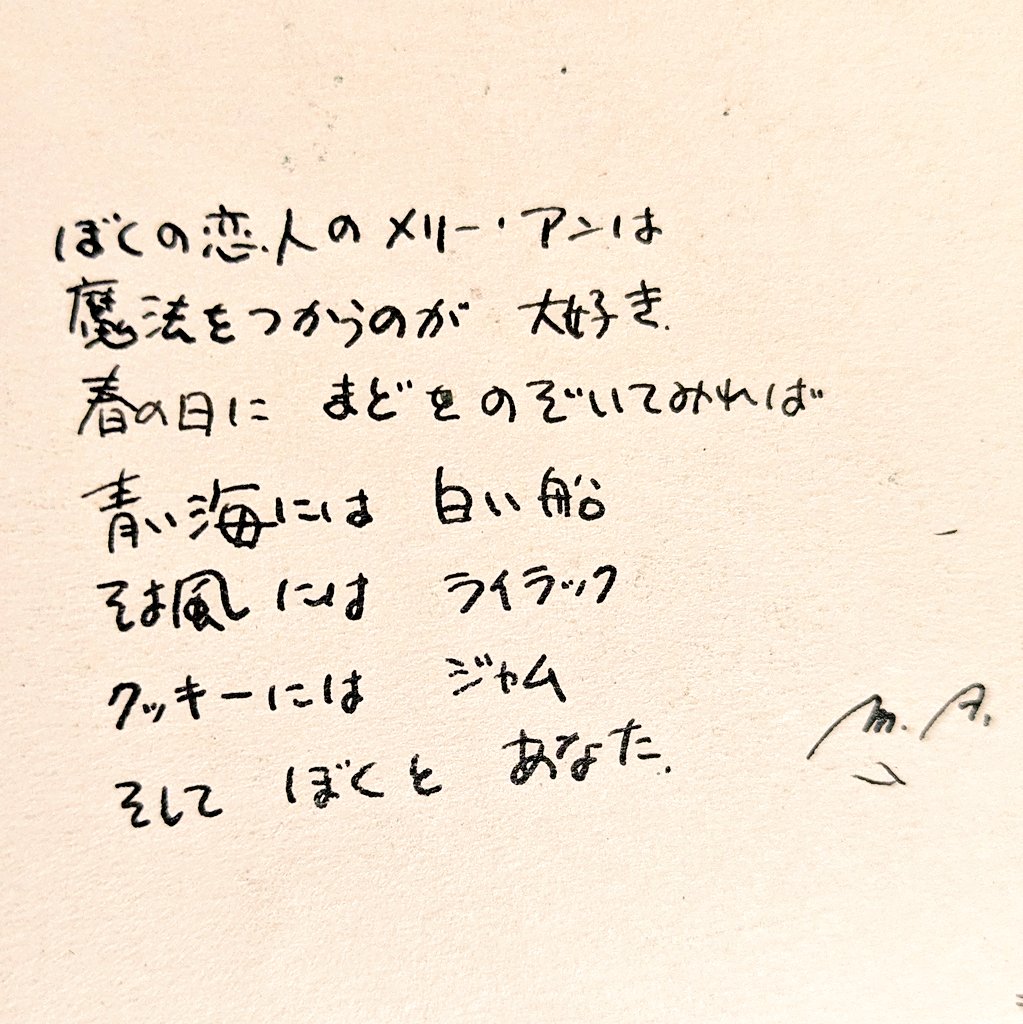 ぼくの恋人のメリー・アンは
魔法をつからのが 大好き.
春の日に まどをのぞいてみれば
青い海には 白い船
そよ風には ライラック
クッキーには ジャム
そして ぼくと あなた.
m. A.